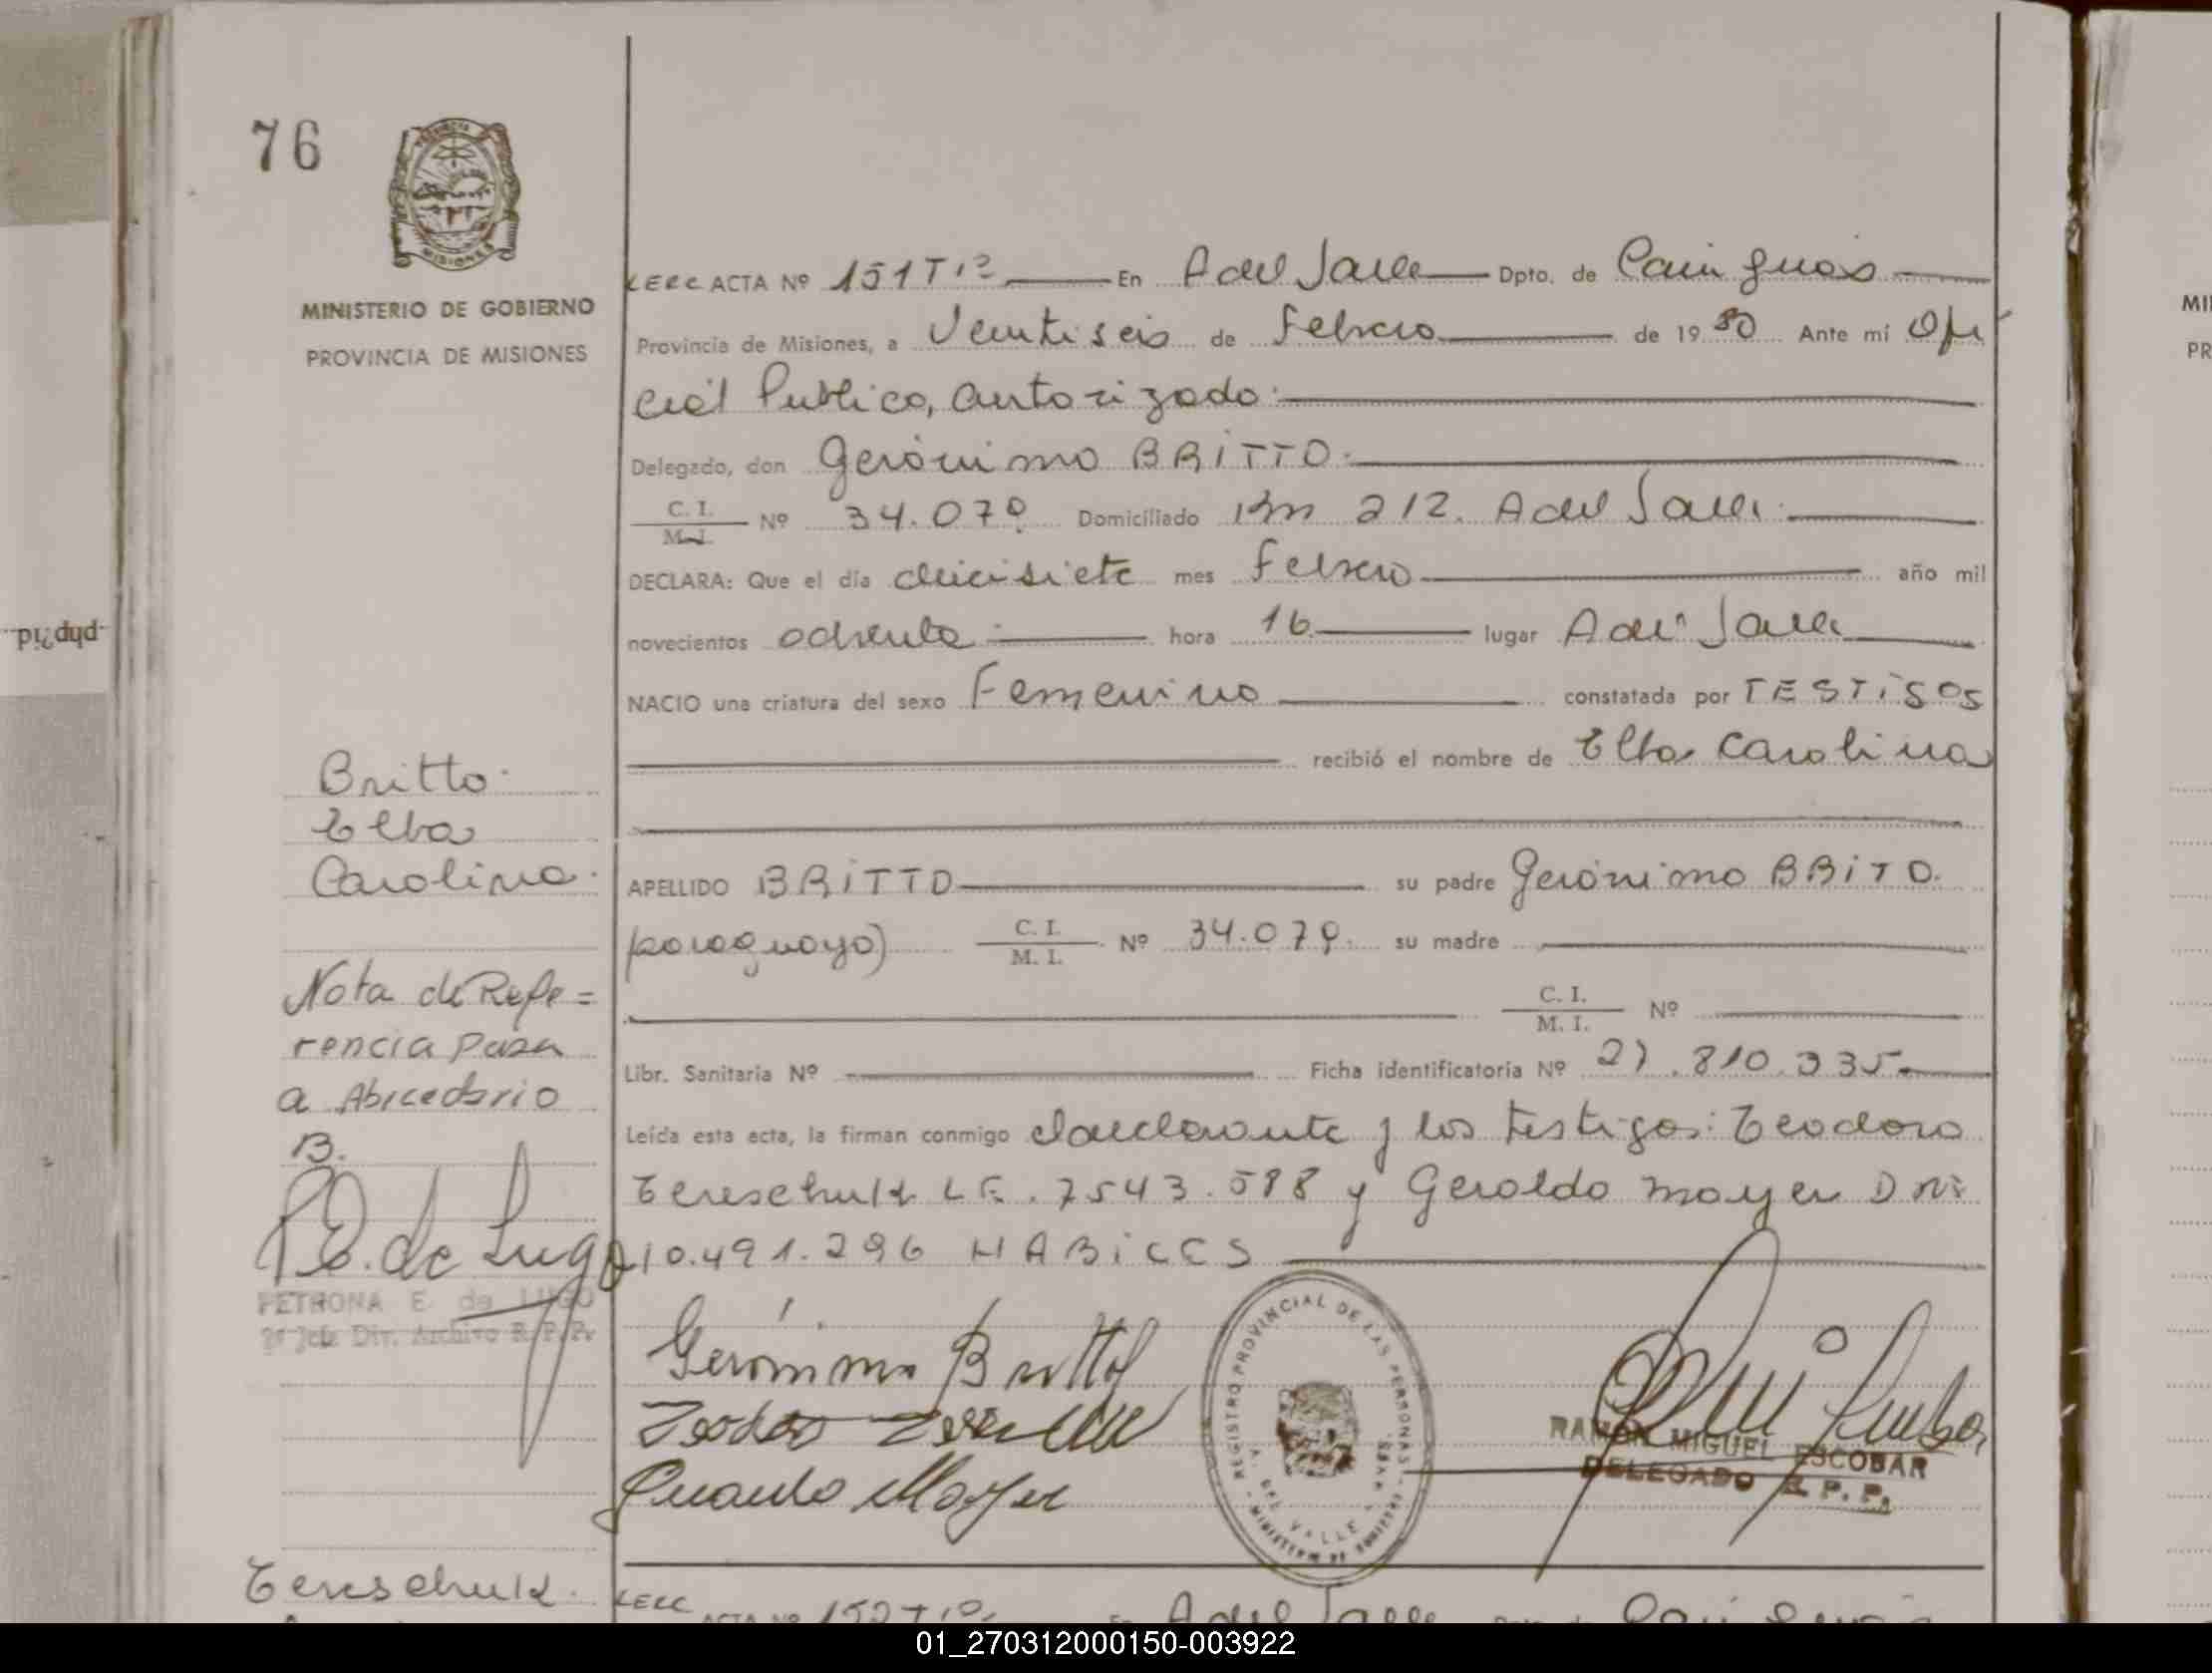 76
PROVINCIA
MISIONES
MINISTERIO DE GOBIERNO
PROVINCIA DE MISIONES
LEEC ACTA Nº 151 Tº En A del Valle Dpto. de Cain guas
Provincia de Misiones, a Veintiseis de Febrero de 19 80 Ante mí Ofi
cial Publico, autorizado.
Delegado, don Gerónimo BRITTO.
C. I. M. I. Nº 34.079 Domiciliado Km 212. A del Valle.
DECLARA: Que el día diecisiete mes Febrero año mil
novecientos ochenta hora 16 lugar A del Valle
NACIO una criatura del sexo Femenino constatada por TESTIGOS
recibió el nombre de Elba Carolina
Britto
Elba
Carolina.
APELLIDO BRITTO su padre Gerónimo BRITO.
paraguayo) C. I. M. I. Nº 34.079. su madre
C. I. M. I. Nº
Libr. Sanitaria Nº Ficha identificatoria Nº 27.810.335
Leída esta acta, la firman conmigo declarante y los testigos: Teodoro
Tereschuk LE. 7543.588 y Geraldo Mayer DNI
10.491.296 HABILES
Nota de Refe=
rencia pasa
a Abicedario
B.
P.E. de Lugo
PETRONA E. de LUGO
2º Jefe Div. Archivo R.P.P.
Gerónimo Britto
REGISTRO PROVINCIAL DE LAS PERSONAS
DEL VALLE
RAMON MIGUEL ESCOBAR
DELEGADO R. P. P.
Tereschuk.
LEEC ACTA Nº 152 Tº En A del Valle Cain guas
php?id
MI
PR
01_270312000150-003922